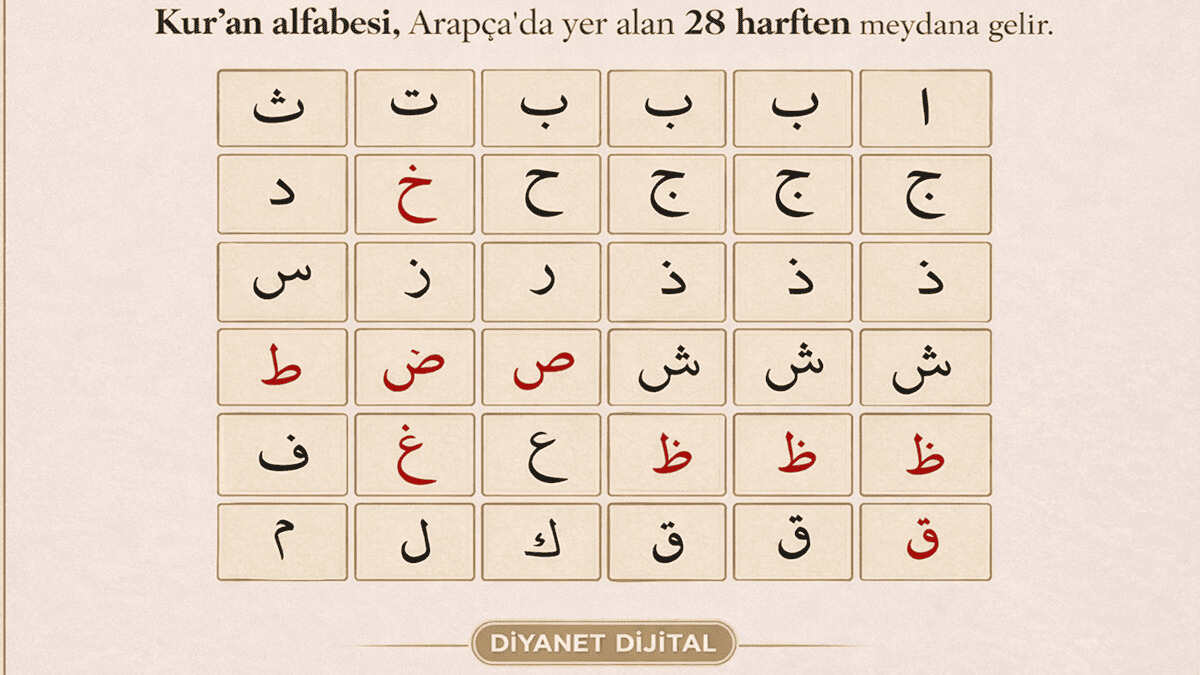 Kur’an alfabesi, Arapça'da yer alan 28 harften meydana gelir.
ا ب ب ب ت ث
ج ج ج ح خ د
ذ ذ ذ ر ز س
ش ش ش ص ض ط
ظ ظ ظ ع غ ف
ق ق ق ك ل م
DİYANET DİJİTAL